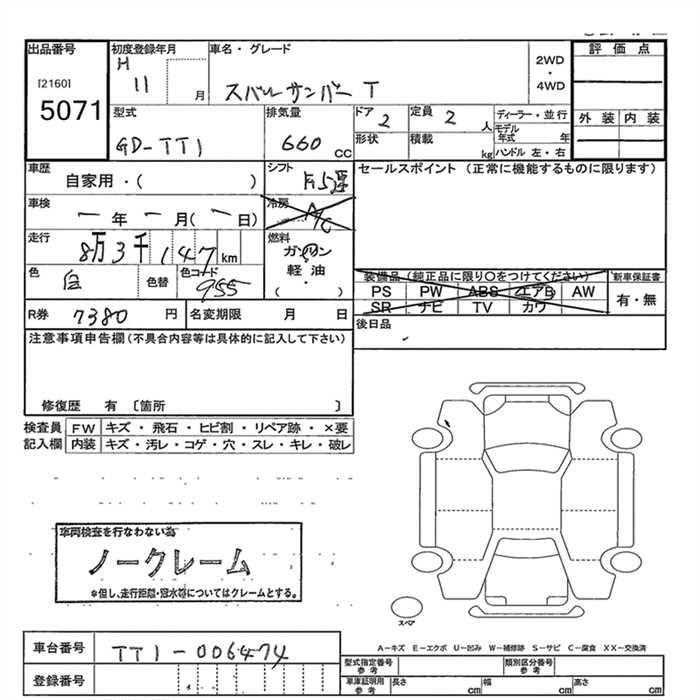 出品番号
[2160]
5071
初度登録年月
H 11 月
車名・グレード
スバルサンバー T
2WD
・
4WD
評価点
外装 内装
型式
GD-TT1
排気量
660 CC
ドア
2
定員
2 人
形状
積載
kg
ディーラー・並行
モデル年式 年
ハンドル 左・右
車歴
自家用・( )
シフト
F5
セールスポイント (正常に機能するものに限ります)
車検
一年一月(一日)
冷房
A/C
走行
8万3千147km
燃料
ガソリン
軽油
( )
色
白
色替
色コード
955
装備品 (純正品に限り○をつけてください)
PS PW ABS エアB AW
SR ナビ TV カワ
新車保証書
有・無
R券 7380 円
名変期限 月 日
後日品
注意事項申告欄(不具合内容等は具体的に記入して下さい)
修復歴 有〔箇所 〕
検査員記入欄
FW キズ・飛石・ヒビ割・リペア跡・×要
内装 キズ・汚レ・コゲ・穴・スレ・キレ・破レ
車両検査を行なわない為
ノークレーム
*但し、走行距離・冠水等についてはクレームとする。
スペア
A-キズ E-エクボ U-凹み W-補修跡 S-サビ C-腐食 XX-交換済
車台番号 TT1-006474
登録番号
型式指定番号参考
類別区分番号参考
車庫証明用参考
長さ cm 幅 cm 高さ cm